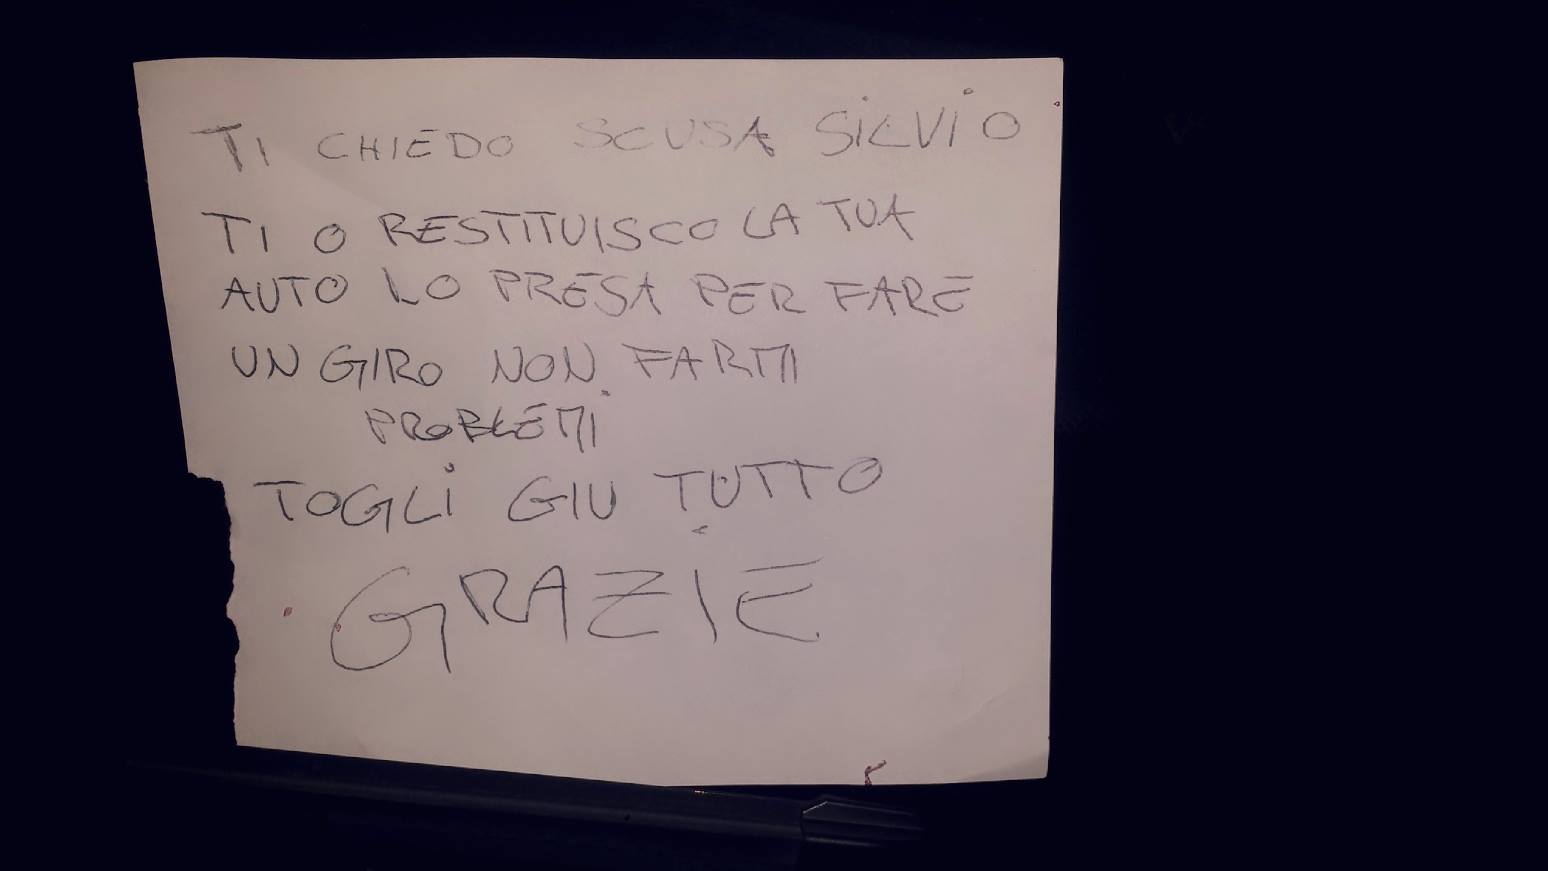 TI CHIEDO SCUSA SILVIO
TI O RESTITUISCO LA TUA
AUTO LO PRESA PER FARE
UN GIRO NON FARMI
PROBLEMI
TOGLI GIU TUTTO
GRAZIE